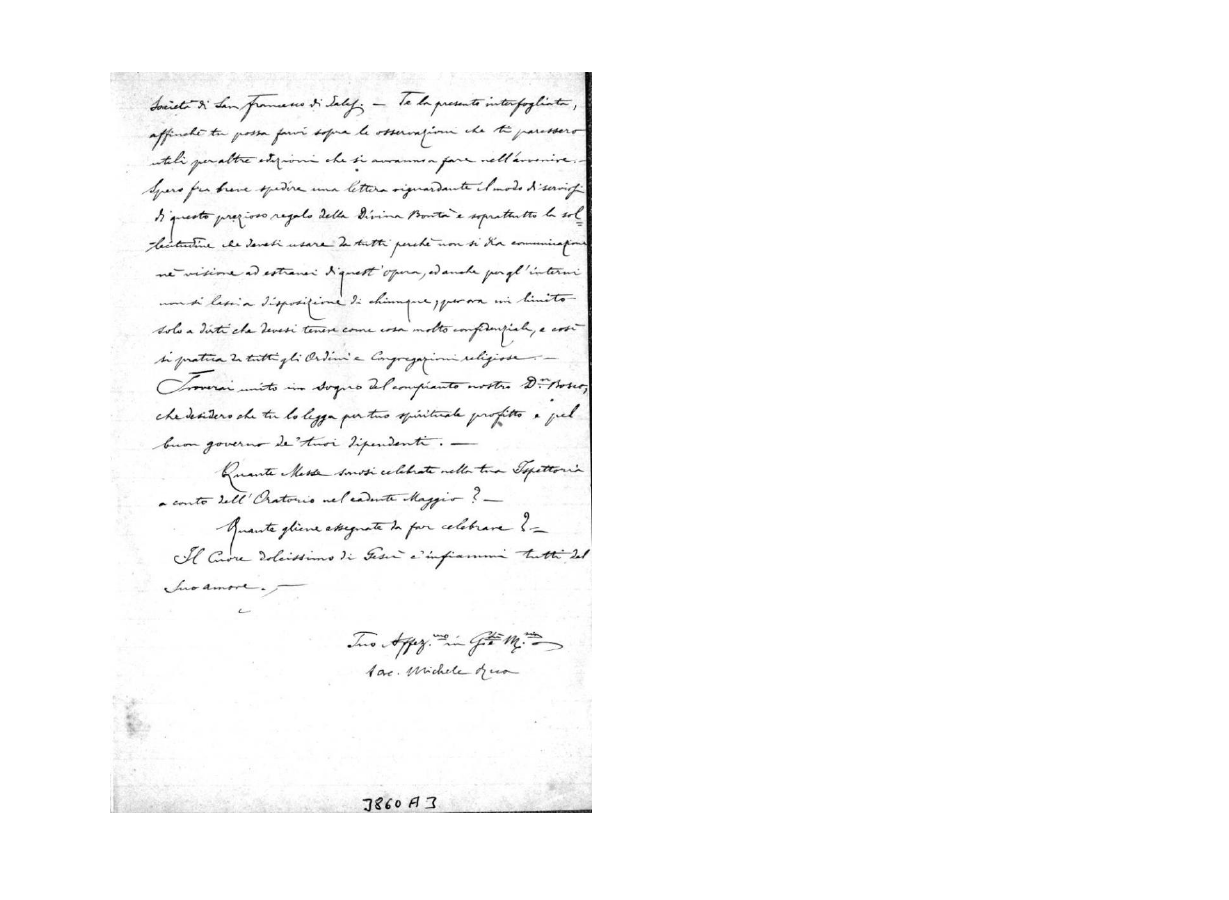 Società di San Francesco di Sales. — Te la presento interfogliata,
affinchè tu possa farvi sopra le osservazioni che ti paressero
utili per altre edizioni che si avranno a fare nell'avvenire. —
Spero fra breve spedire una lettera riguardante il modo di servirsi
di questo prezioso regalo della Divina Bontà e soprattutto la sol=
lecitudine che devesi usare da tutti perchè non si dia comunicazione
nè visione ad estranei di quest'opera, ed anche per gl'interni
non si lasci a disposizione di chiunque; per ora mi limito
solo a dirti che devesi tenere come cosa molto confidenziale, e così
si pratica da tutti gli Ordini e Congregazioni religiose. —
Troverai unito un sogno del compianto nostro D.n Bosco,
che desidero che tu lo legga per tuo spirituale profitto e pel
buon governo de' tuoi dipendenti. —
Quante Messe sonosi celebrate nella tua Ispettoria
a conto dell'Oratorio nel cadente Maggio? —
Quante gliene assegnate da far celebrare? —
Il Cuore dolcissimo di Gesù c'infiammi tutti del
Suo amore. —
Tuo Affez.mo in G. M.
Sac. Michele Rua
3860 A 3